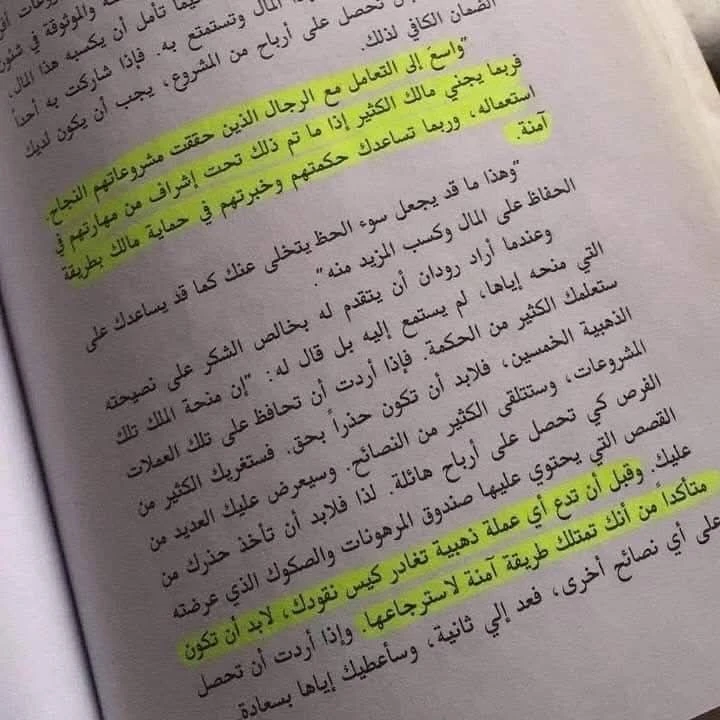 الضمان الكافي لذلك.
المال وتستمتع به. فإذا شاركت به أحداً
تحصل على أرباح من المشروع، يجب أن يكون لديك
"واسعَ إلى التعامل مع الرجال الذين حققت مشروعاتهم النجاح.
فربما يجني مالك الكثير إذا ما تم ذلك تحت إشراف من مهارتهم في
استعماله، وربما تساعدك حكمتهم وخبرتهم في حماية مالك بطريقة
آمنة.
"وهذا ما قد يجعل سوء الحظ يتخلى عنك كما قد يساعدك على
الحفاظ على المال وكسب المزيد منه".
وعندما أراد رودان أن يتقدم له بخالص الشكر على نصيحته
التي منحه إياها، لم يستمع إليه بل قال له: "إن منحة الملك تلك
ستعلمك الكثير من الحكمة. فإذا أردت أن تحافظ على تلك العملات
الذهبية الخمسين، فلابد أن تكون حذراً بحق. فستغريك الكثير من
المشروعات، وستتلقى الكثير من النصائح. وسيعرض عليك العديد من
الفرص كي تحصل على أرباح هائلة. لذا فلابد أن تأخذ حذرك من
القصص التي يحتوي عليها صندوق المرهونات والصكوك الذي عرضته
عليك. وقبل أن تدع أي عملة ذهبية تغادر كيس نقودك، لابد أن تكون
متأكداً من أنك تمتلك طريقة آمنة لاسترجاعها. وإذا أردت أن تحصل
على أي نصائح أخرى، فعد إلي ثانية، وسأعطيك إياها بسعادة